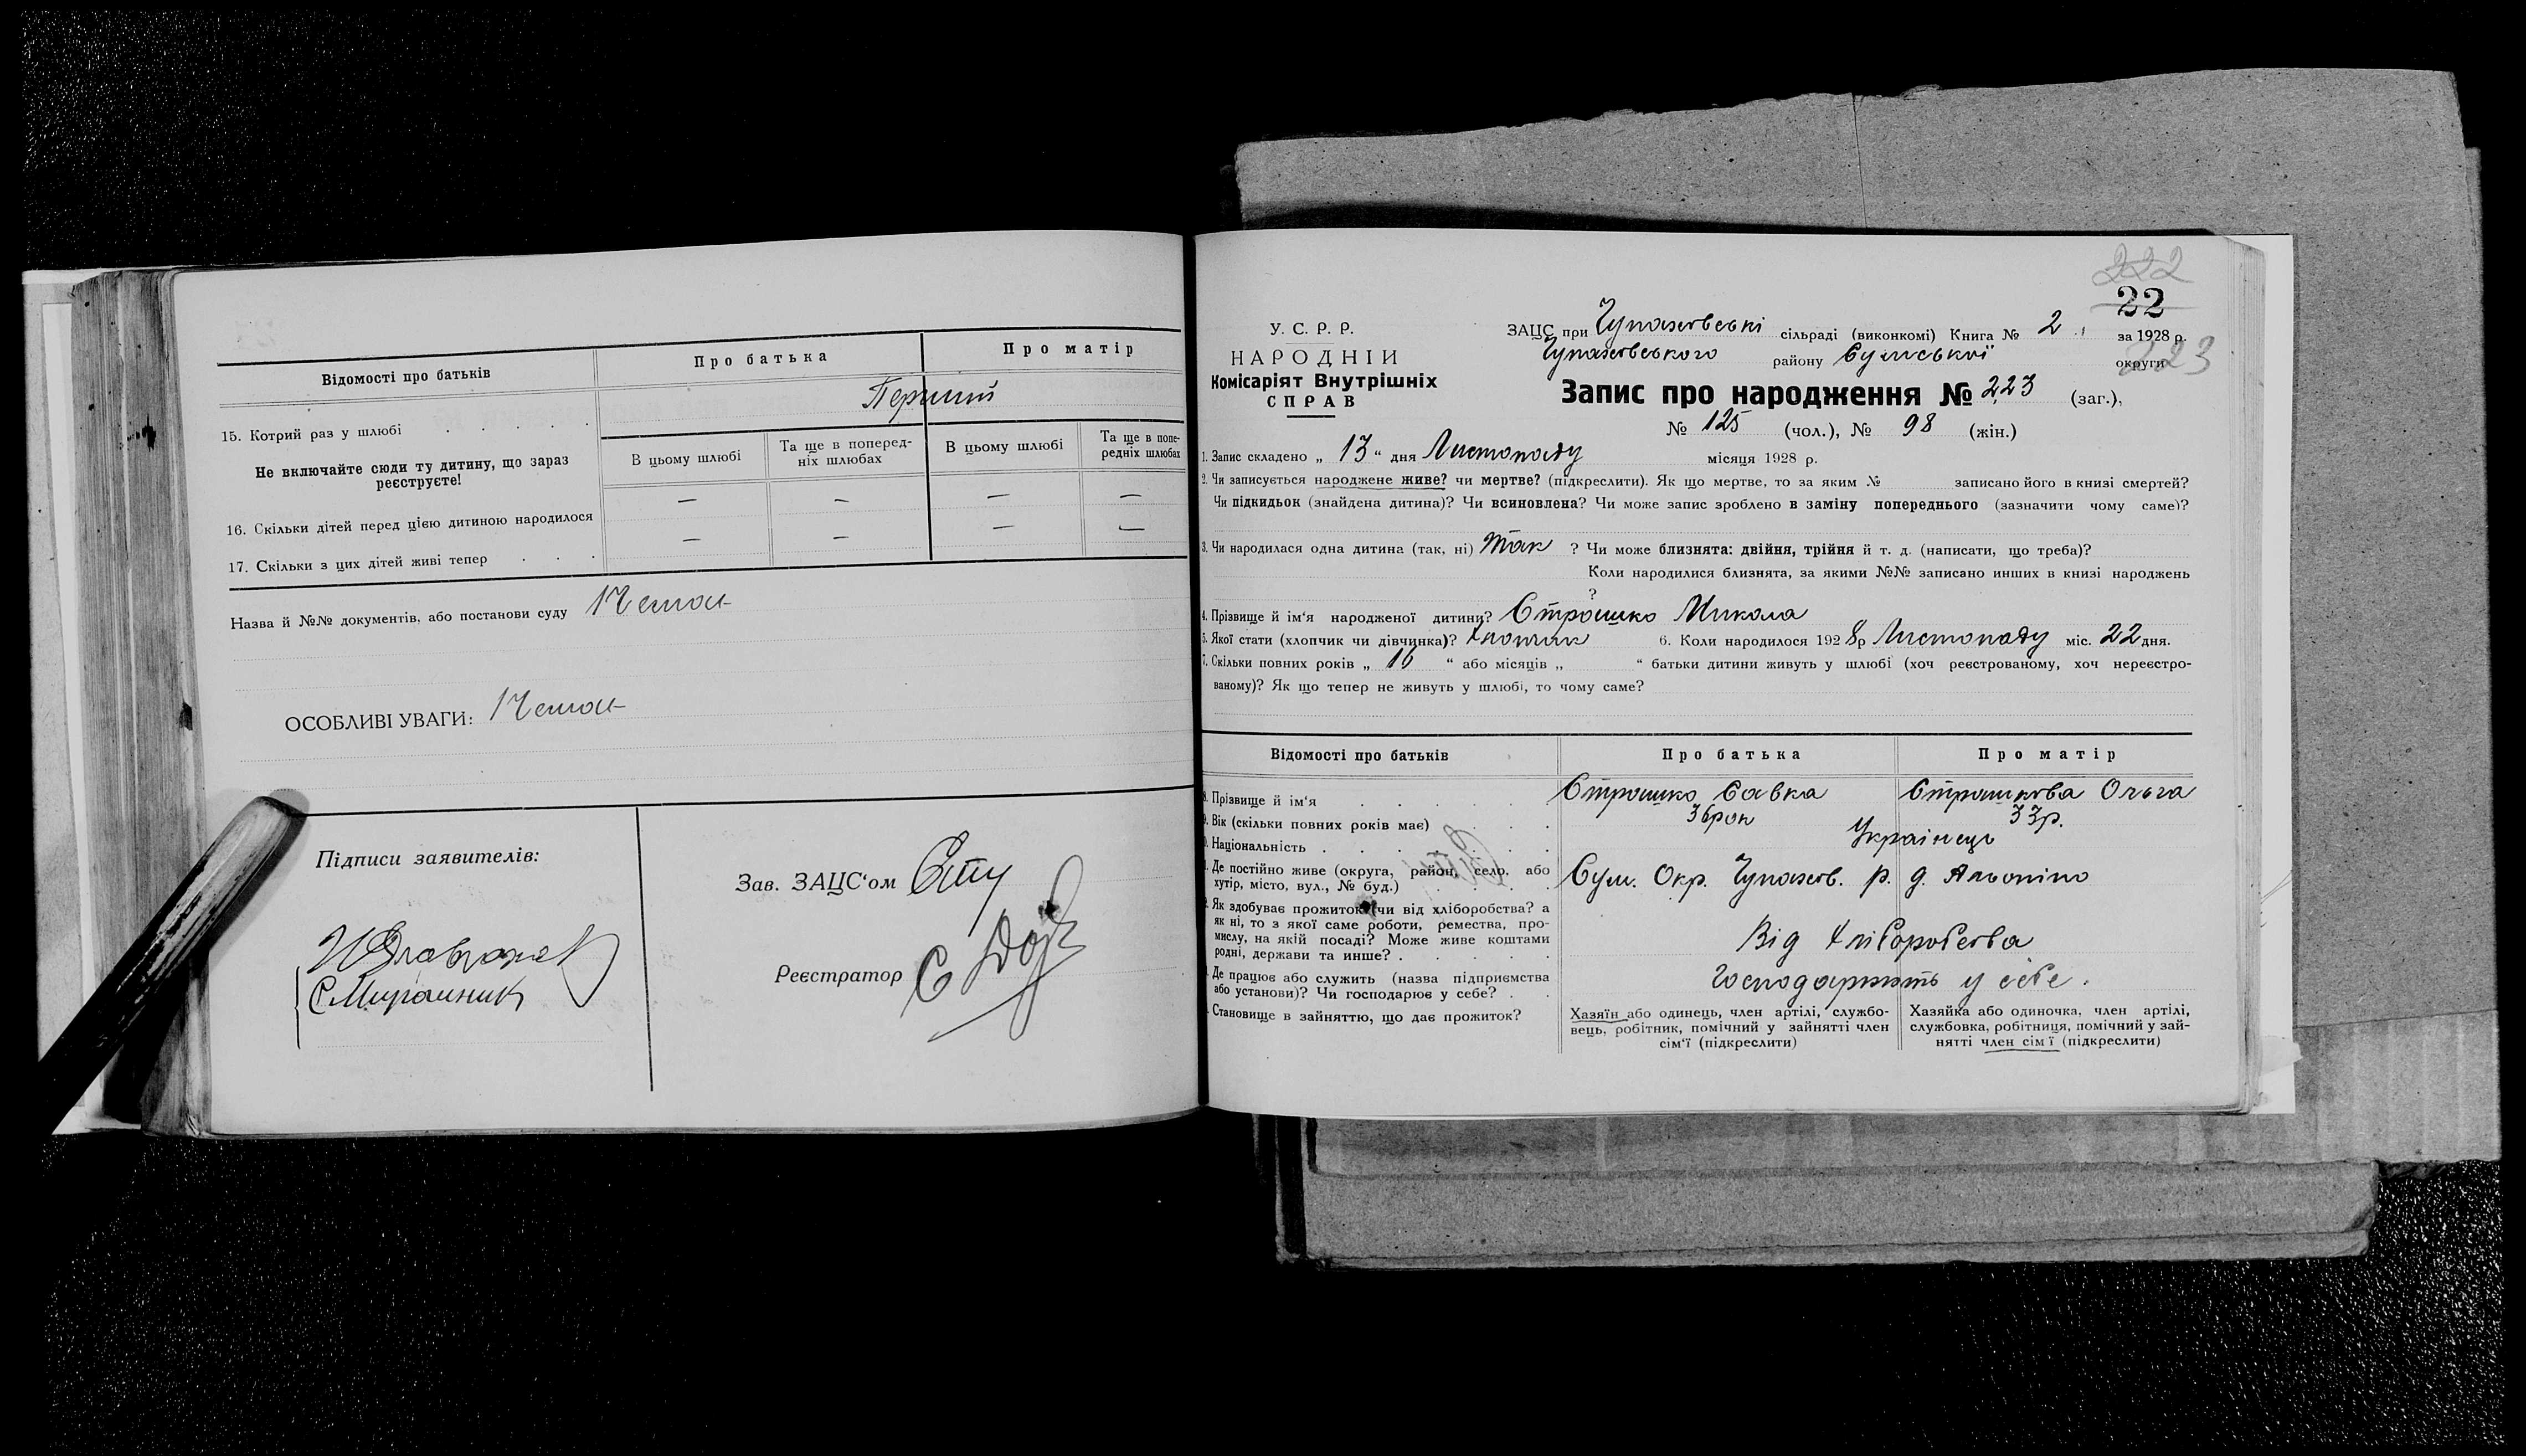 Відомості про батьків
Про батька
Про матір
15. Котрий раз у шлюбі . . . . .
Перший
Не включайте сюди ту дитину, що зараз
реєструєте!
В цьому шлюбі
Та ще в поперед-
ніх шлюбах
В цьому шлюбі
Та ще в попе-
редніх шлюбах
16. Скільки дітей перед цією дитиною народилося
— — — —
17. Скільки з цих дітей живі тепер . . .
— — — —
Назва й №№ документів, або постанови суду Немає
ОСОБЛИВІ УВАГИ: Немає
Підписи заявителів:
Зав. ЗАЦС'ом
Реєстратор
222
22
У. С. Р. Р.
НАРОДНІЙ
Комісаріят Внутрішніх
СПРАВ
ЗАЦС при Чупахівські сільраді (виконкомі) Книга № 2 за 1928 р.
Чупахівського району Сумської округи
223
Запис про народження № 223 (заг.),
№ 125 (чол.), № 98 (жін.)
1. Запис складено „ 13 “ дня Листопаду місяця 1928 р.
2. Чи записується народжене живе? чи мертве? (підкреслити). Як що мертве, то за яким № записано його в книзі смертей?
Чи підкидьок (знайдена дитина)? Чи всиновлена? Чи може запис зроблено в заміну попереднього (зазначити чому саме)?
3. Чи народилася одна дитина (так, ні) Так ? Чи може близнята: двійня, трійня й т. д. (написати, що треба)?
Коли народилися близнята, за якими №№ записано инших в книзі народжень
?
4. Прізвище й ім'я народженої дитини? Страшко Микола
5. Якої стати (хлопчик чи дівчинка)? Хлопчик 6. Коли народилося 1928р Листопаду міс. 22 дня.
7. Скільки повних років „ 16 “ або місяців „ “ батьки дитини живуть у шлюбі (хоч реєстрованому, хоч нереєстро-
ваному)? Як що тепер не живуть у шлюбі, то чому саме?
Відомості про батьків
Про батька
Про матір
8. Прізвище й ім'я . . . . .
Страшко Савка
Страшкова Ольга
9. Вік (скільки повних років має) . . .
36рок
33р.
Національність . . . . . . .
Українець
Де постійно живе (округа, район, село, або
хутір, місто, вул., № буд.) . . . .
Сум. Окр. Чупахів. р. д.
Як здобуває прожиток (чи від хліборобства? а
як ні, то з якої саме роботи, ремества, про-
мислу, на якій посаді? Може живе коштами
родні, держави та инше? . . . . .
Від Хліборобства
Де працює або служить (назва підприємства
або установи)? Чи господарює у себе? . .
Господарюють у себе.
Становище в зайняттю, що дає прожиток?
Хазяїн або одинець, член артілі, службо-
вець, робітник, помічний у зайнятті член
сім'ї (підкреслити)
Хазяйка або одиночка, член артілі,
службовка, робітниця, помічний у зай-
нятті член сім'ї (підкреслити)